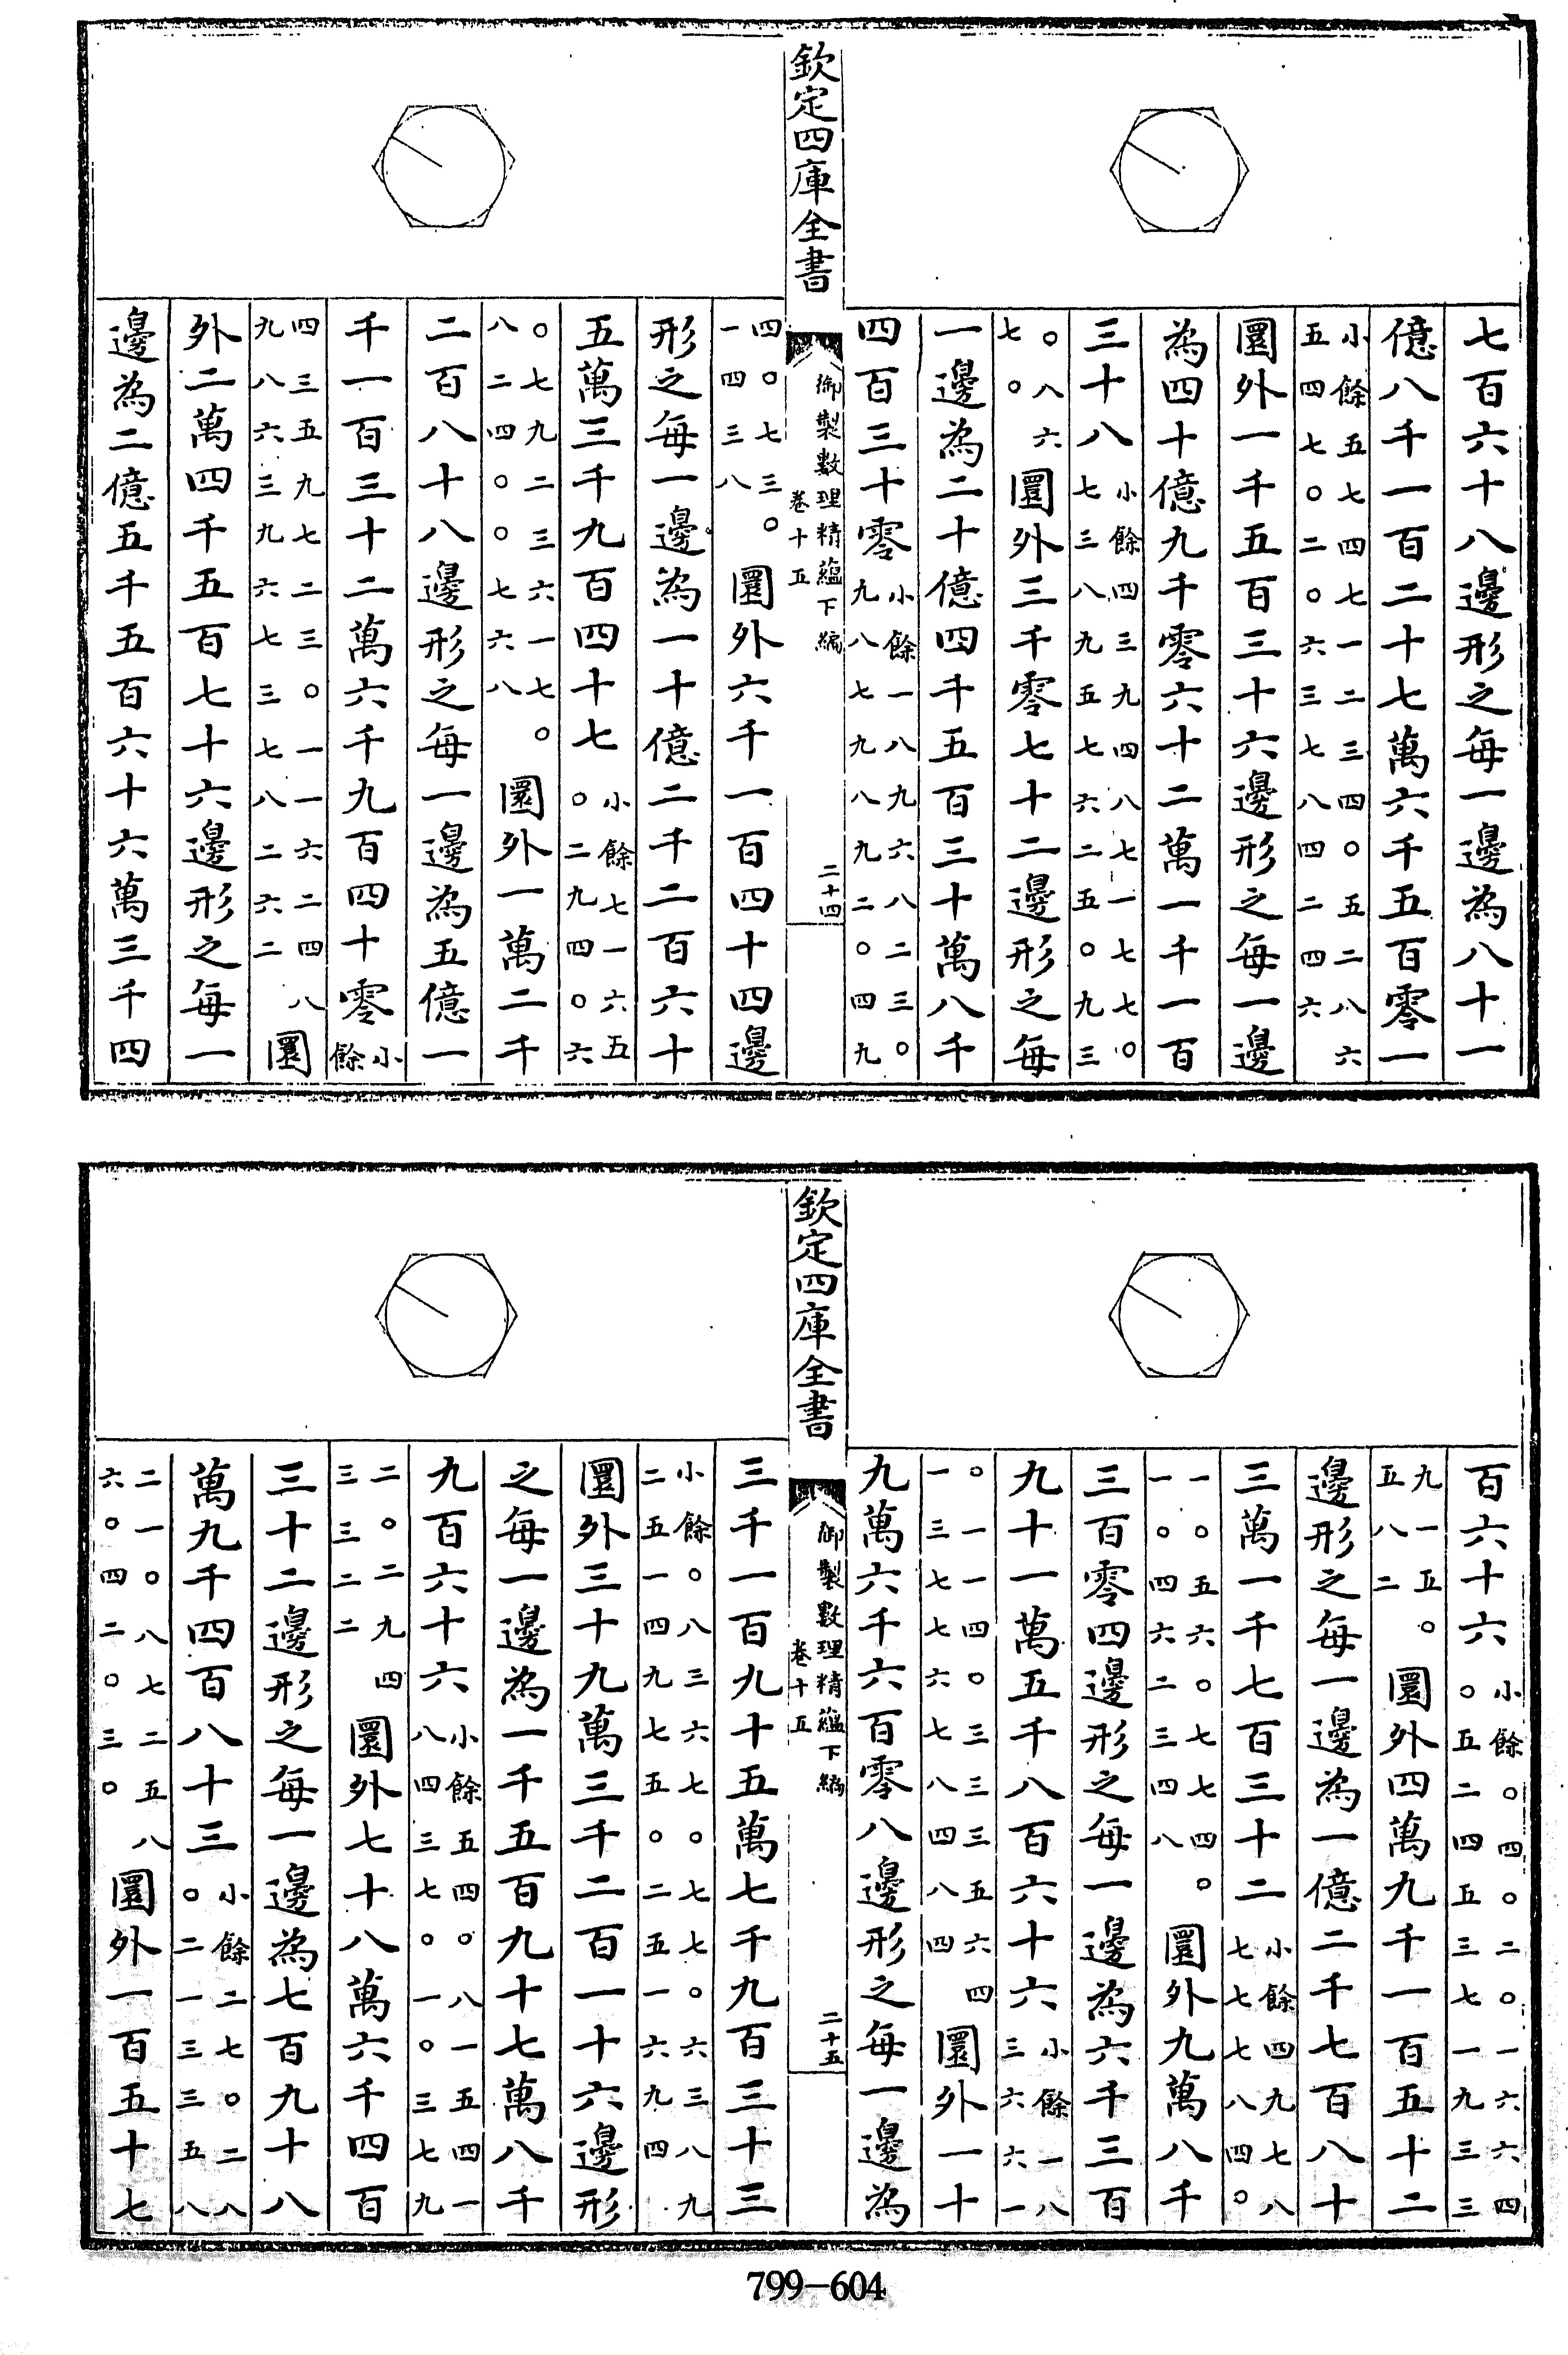 七百六十八邊形之每一邊為八十一
億八千一百二十七萬六千五百零一
小餘五七四七一二三四〇五二八六
五四七〇二〇六三七八四二四六
圜外一千五百三十六邊形之每一邊
為四十億九千零六十二萬一千一百
三十八小餘四三九四八七一七七〇
七三八九五七六二五〇九三
〇八六
七〇圜外三千零七十二邊形之每
一邊為二十億四千五百三十萬八千
四百三十零小餘一八九六八二三〇
九八七九八九二〇四九
欽定四庫全書
御製數理精蘊下編
卷十五
二十四
四〇七三〇
一四三八圜外六千一百四十四邊
形之每一邊為一十億二千二百六十
五萬三千九百四十七小餘七一六五
〇二九四〇六
〇七九二三六一七〇
八二四〇〇七六八圜外一萬二千
二百八十八邊形之每一邊為五億一
千一百三十二萬六千九百四十零小餘
四三五九七二三〇一一六二四八
九八六三九六七三七八二六二圜
外二萬四千五百七十六邊形之每一
邊為二億五千五百六十六萬三千四
百六十六小餘〇四〇二〇一六六四
〇五二四五三七一九三三
九一五〇
五八二圜外四萬九千一百五十二
邊形之每一邊為一億二千七百八十
三萬一千七百三十二小餘四九七八
七七七八四〇
一〇五六〇七七四〇
一〇四六二三四八圜外九萬八千
三百零四邊形之每一邊為六千三百
九十一萬五千八百六十六小餘一八
三六六一
〇一一四〇三三三五六四
一三七七六七八四八四圜外一十
九萬六千六百零八邊形之每一邊為
欽定四庫全書
御製數理精蘊下編
卷十五
二十五
三千一百九十五萬七千九百三十三
小餘〇八三六七〇七七〇六三八九
二五一四九七五〇二五一六九四
圜外三十九萬三千二百一十六邊形
之每一邊為一千五百九十七萬八千
九百六十六小餘五四〇八一五四一
八四三七〇一〇三七九
二〇二九四
三三二二圜外七十八萬六千四百
三十二邊形之每一邊為七百九十八
萬九千四百八十三小餘二七〇二八
〇二一三三五八
二一〇八七二五八
六〇四二〇三〇圜外一百五十七
799-604